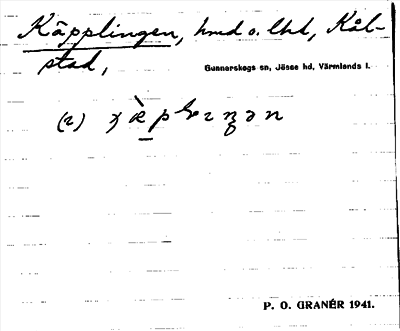 Käpplingen, hmd o. lhd, Kål-
stad,
Gunnarskogs sn, Jösse hd, Värmlands l.
(2)
P. O. GRANÉR 1941.